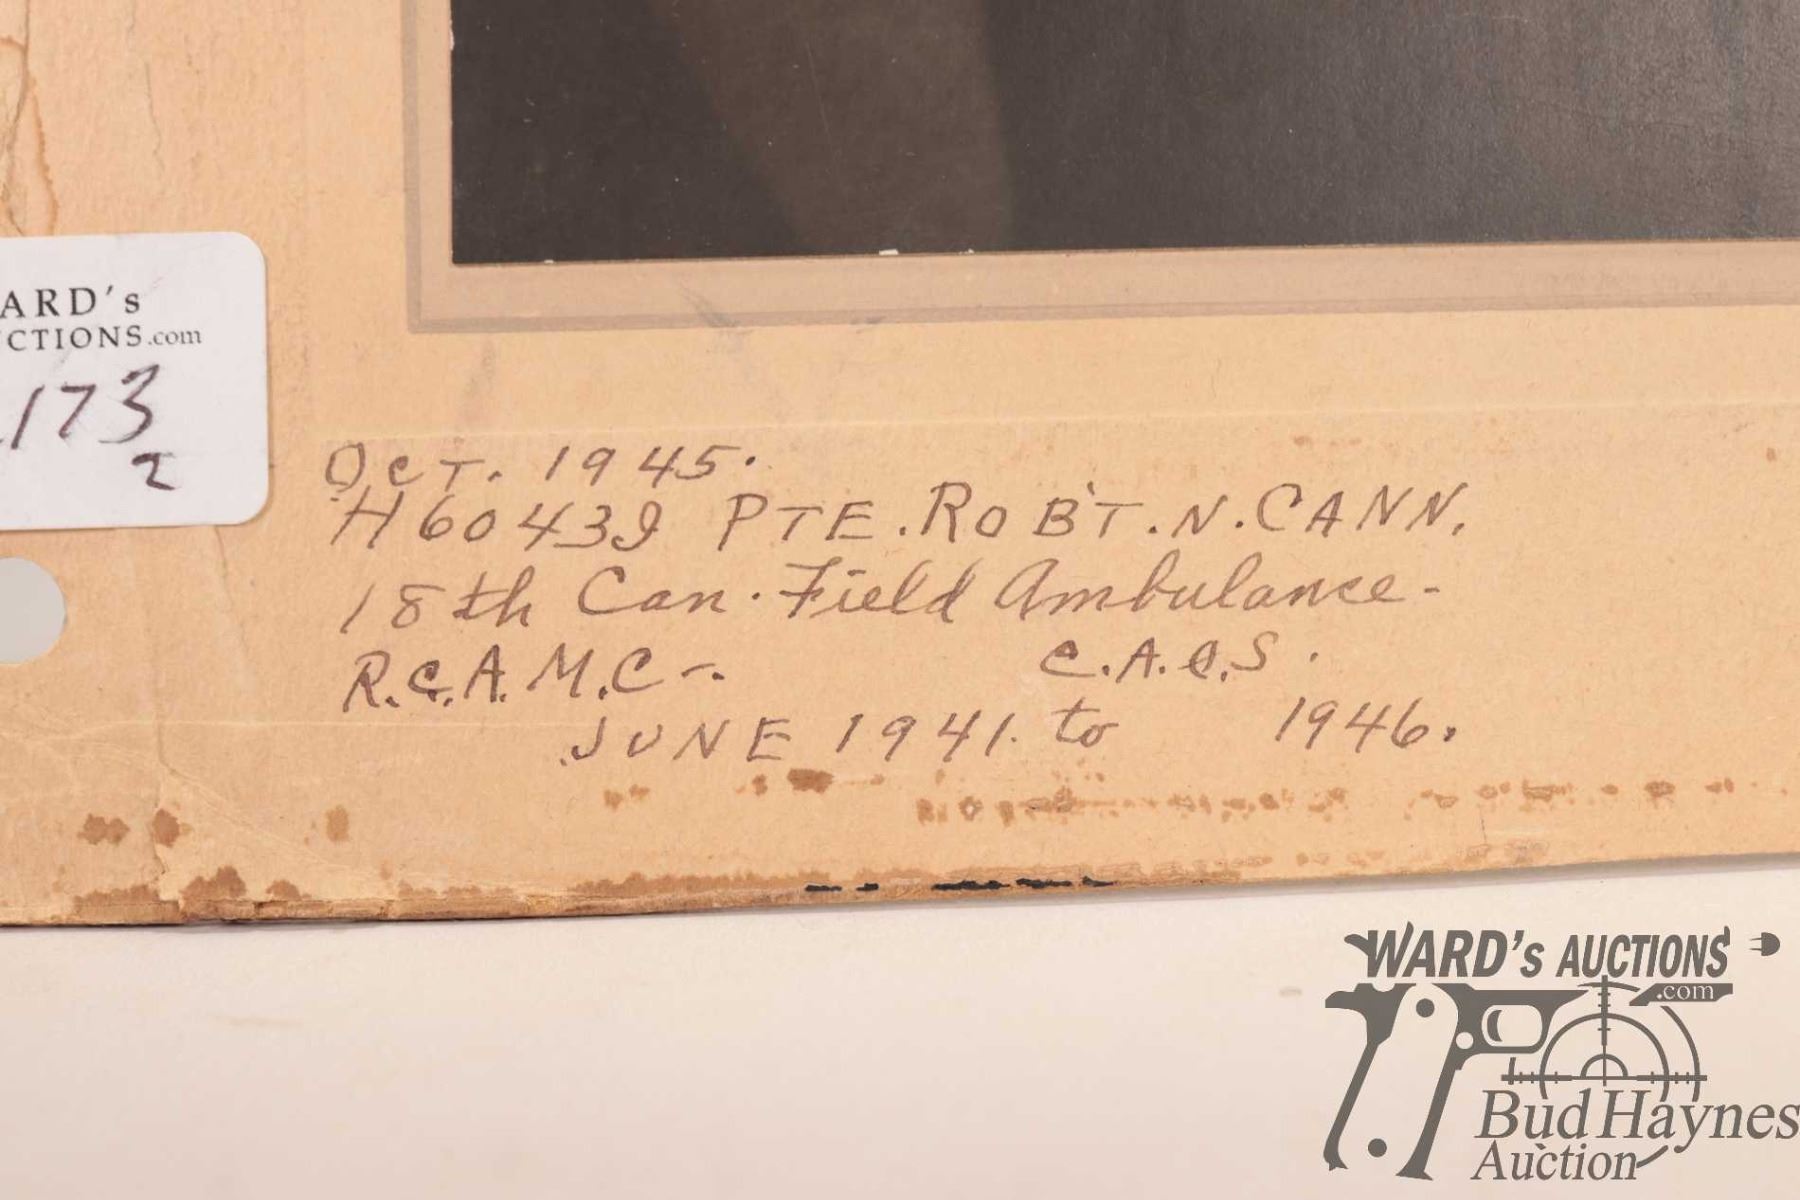 ARD's
CTIONS.com
173
2
OCT. 1945.
PTE. ROB'T. N. CANN.
18th Can. Field Ambulance-
R.C.A.M.C-. C.A.O.S.
JUNE 1941. to 1946.
WARD's AUCTIONS
.com
Bud Haynes
Auction